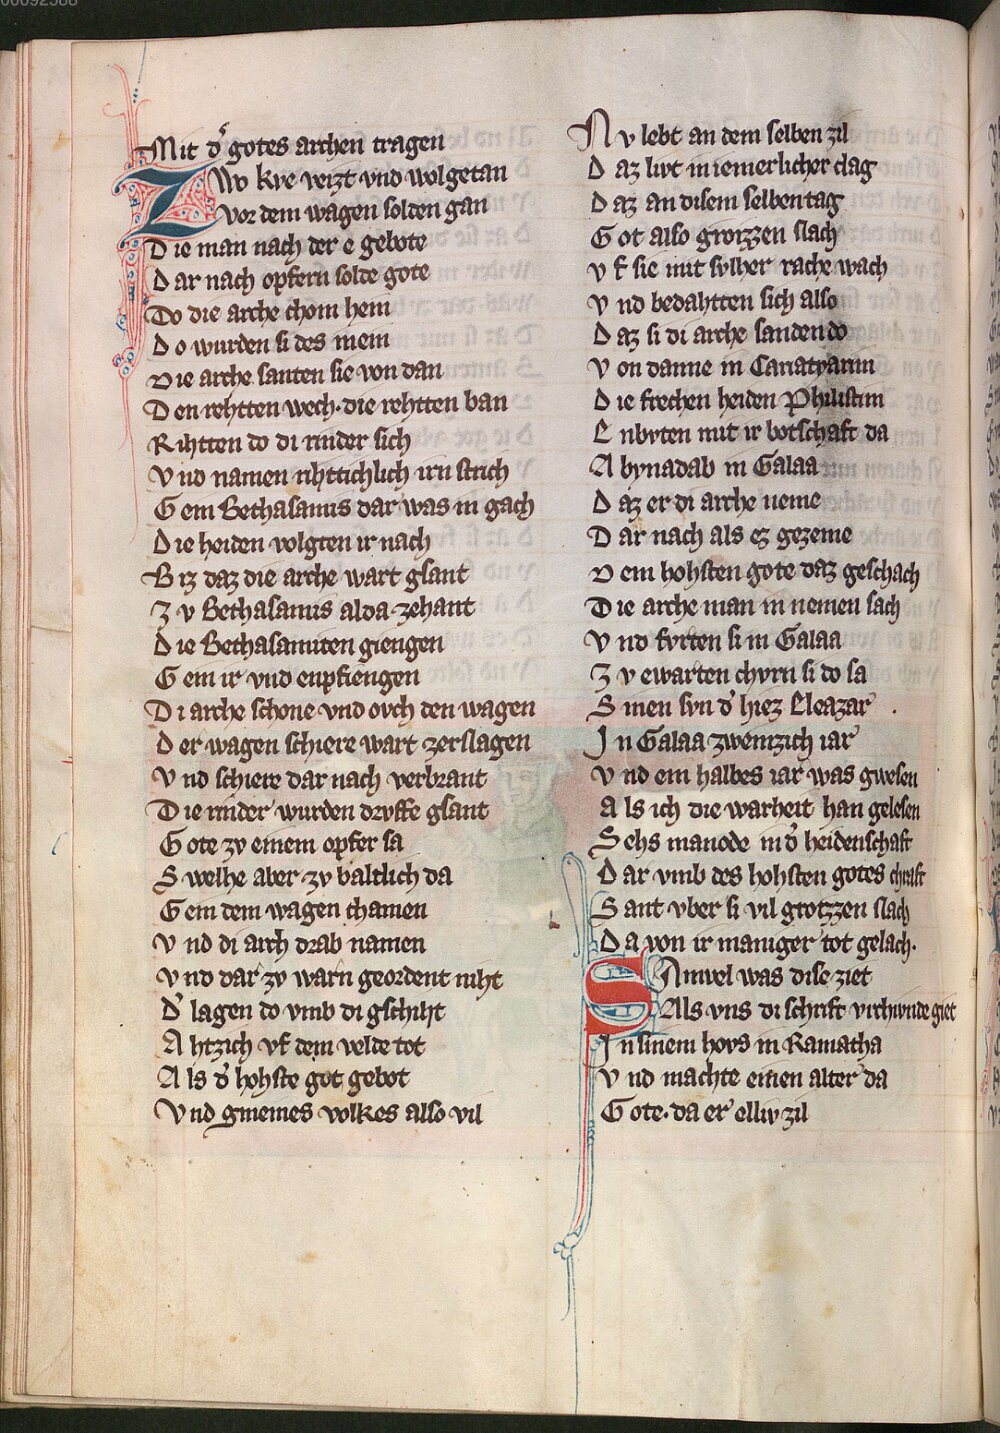 00092588
Mit d᾽ gotes archen tragen
ZWo kve veizt vnd wolgetan
Vor dem wagen solden gan
Die man nach der e gebote
Dar nach opfern solde gote
Do die arche chom hem
Do wurden si des mein
Die arche santen sie von dan
Den rehtten wech· die rehtten ban
Rihtten do di rinder sich
Vnd namen rihttichlich irn strich
Gein Bethasamis dar was in gach
Die heiden volgten ir nach
Biz daz die arche wart gsant
Zv Bethasamis alda zehant
Die Bethasamiten giengen
Gein ir vnd enpfiengen
Di arche schone vnd ovch den wagen
Der wagen schiere wart zerslagen
Vnd schiere dar nach verbrant
Die rinder wurden drvffe gsant
Gote zv einem opfer sa
Swelhe aber zv baltlich da
Gein dem wagen chamen
Vnd di arch drab namen
Vnd dar zv warn geordent niht
D᾽ lagen do vmb di gschiht
Ahtzich vf dem velde tot
Als d᾽ hohste got gebot
Vnd gmeines volkes also vil
Nv lebt an dem selben zil
Daz livt in iemerlicher clag
Daz an disem selben tag
Got also grozzen slach
Vf sie mit sylher rache wach
Vnd bedahtten sich also
Daz si di arche sanden do
Von danne in Cariatyarim
Die frechen heiden Philistim
Enbvten mit ir botschaft da
Abynadab in Galaa
Daz er di arche neme
Dar nach als ez gezeme
Dem hohsten gote daz geschach
Die arche man in nemen sach
Vnd fvrten si in Galaa
Zv ewarten chvrn si do sa
Sinen svn d᾽ hiez Eleazar
In Galaa zweinzich iar
Vnd ein halbes iar was gwesen
Als ich die warheit han gelesen
Sehs manode in d᾽ heidenschaft
Dar vmb des hohsten gotes chraft
Sant vber si vil grozzen slach
Da von ir maniger tot gelach·
SAmvel was dise ziet
Als vns di schrift vrchvnde giet
In sinem hovs in Ramatha
Vnd machte einen alter da
Gote· da er elliv zil